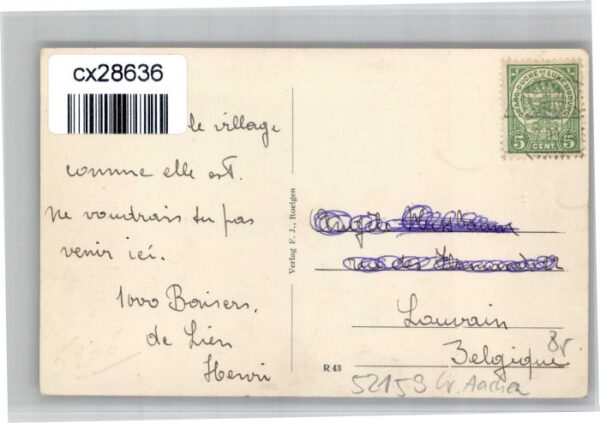 cx28636
le village
comme elle est.
Ne voudrais tu pas
venir ici.
1000 Baisers.
de Lien
Henri
Verlag F. J., Roetgen
R 43
GRAND-DUCHÉ DE LUXEMBOURG
5 CENT. 5
Angèle
rue des
Louvain
Belgique
52159 Kr. Aachen